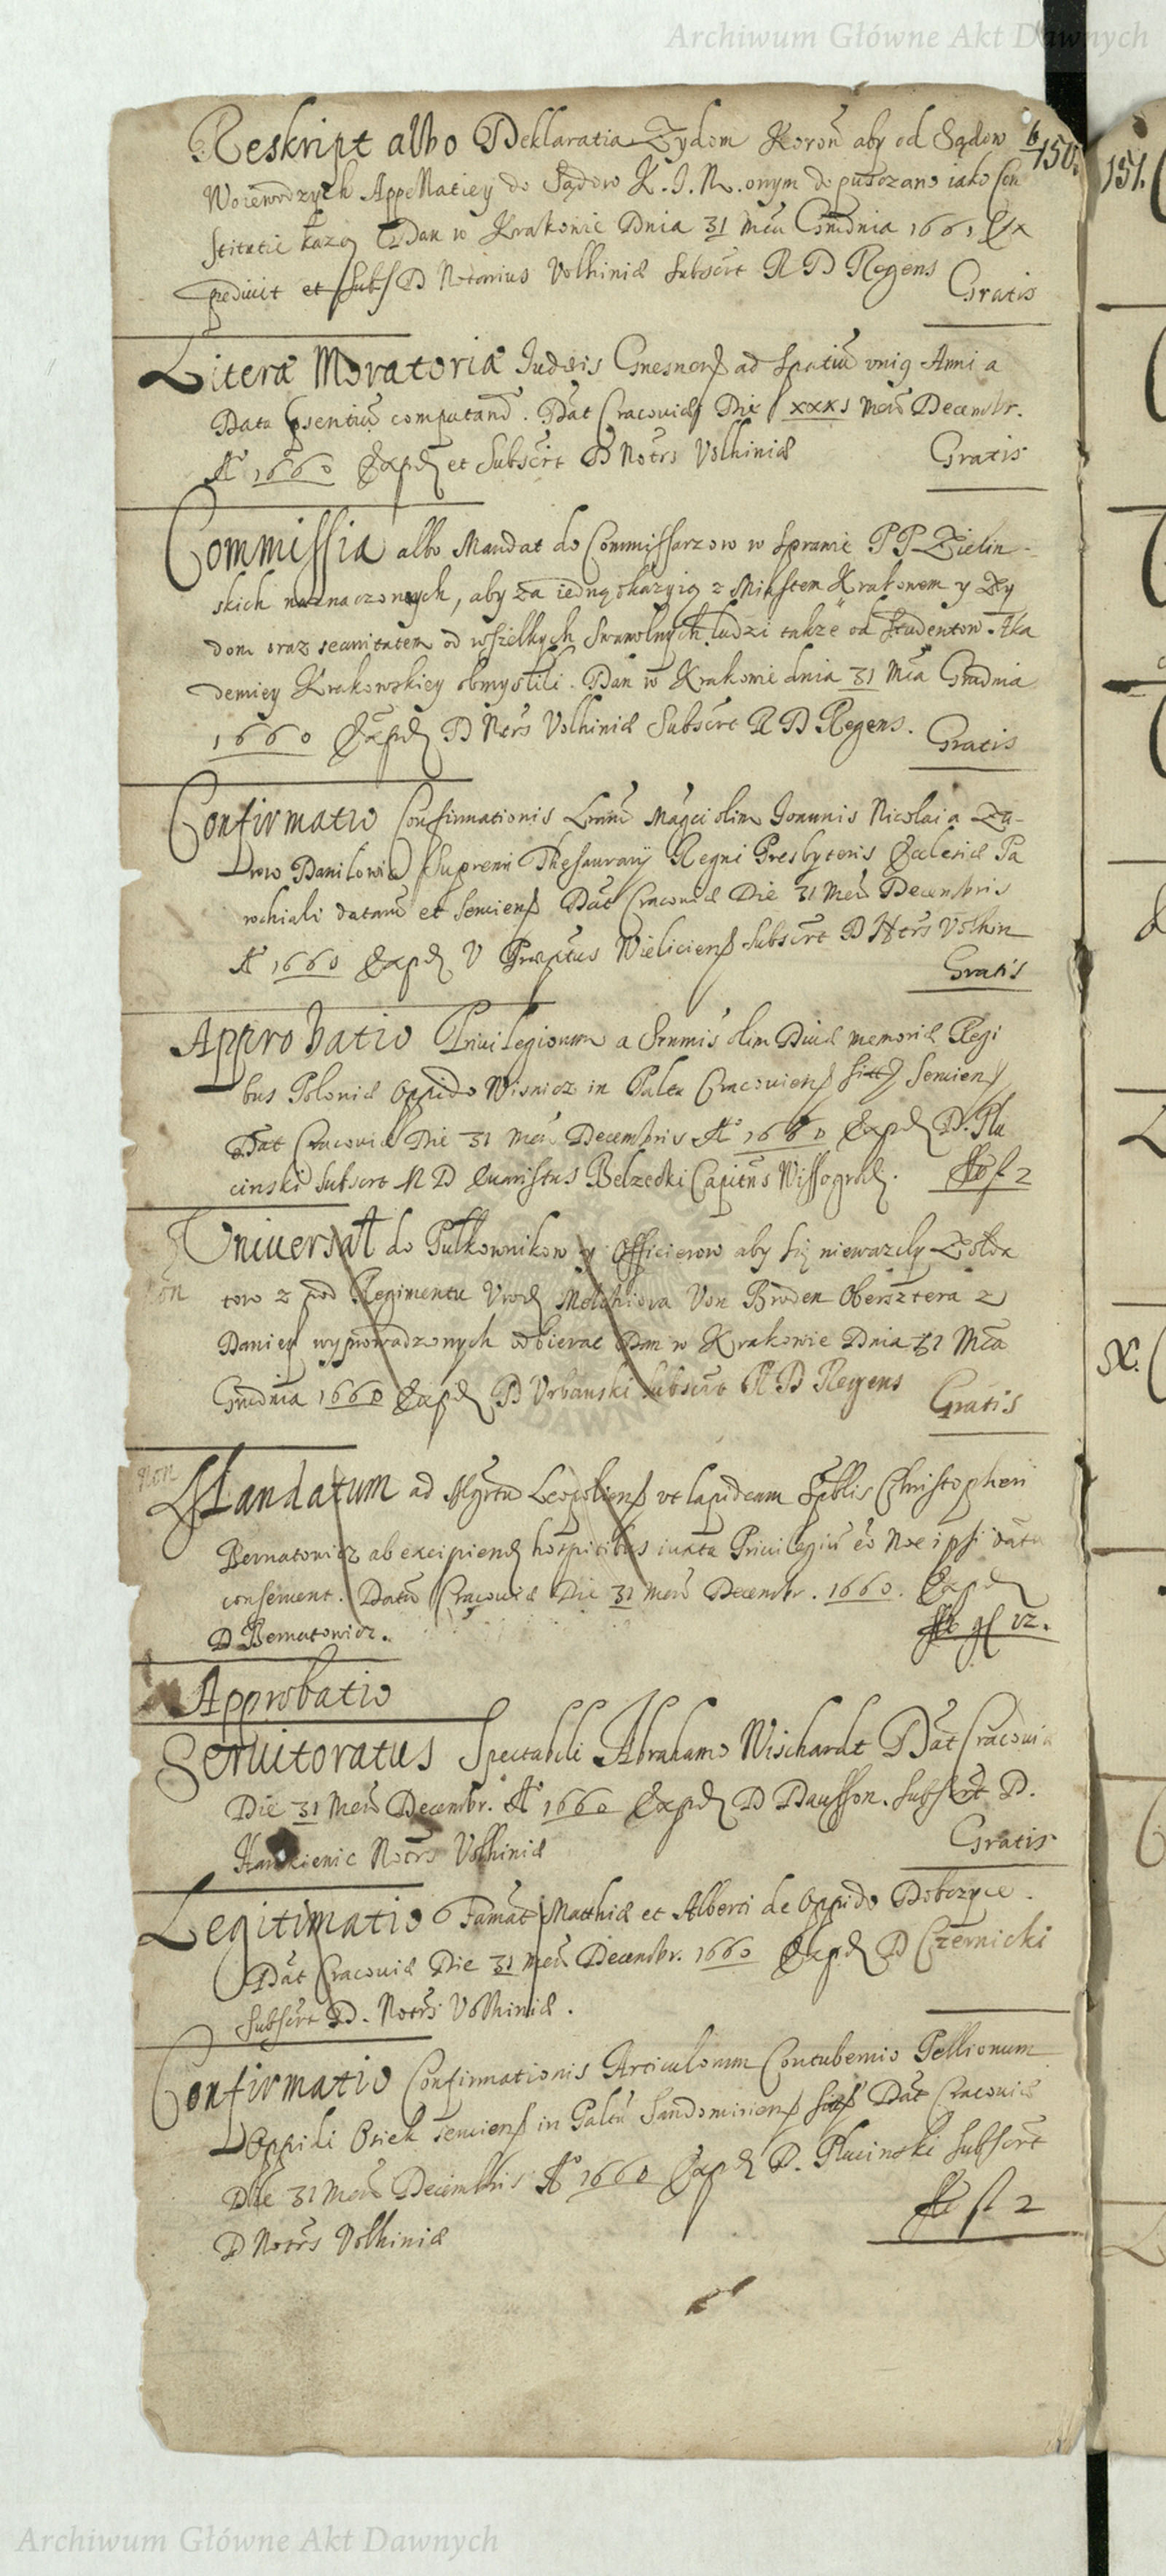 Archiwum Główne Akt Dawnych
6
150.
151.
Reskript albo Deklaratia Zydom Koron̄ aby od Sądow
Woiewodzych Appellatiey do Sądow K. J. M. onym dopusczano iako Con
stitutie każą Dan w Krakowie Dnia 31 Mca Grudnia 1661 Ex
pedivit et subs D Notarius Volhiniæ Subscrt R D Regens
Gratis
Literæ Moratoriæ Judæis Gnesnens ad spatiū unig Anni a
Data psentiū computand. Dat Cracoviæ Die xxx1 Mens Decembr.
A° 1660 Exped et Subscrt D Notrs Volhiniæ
Gratis
Commissia albo Mandat do Commissarzow w sprawie PP Zielin-
skich naznaczonych, aby za iedną okazyią z Miastem Krakowem y Zy
dom oraz securitatem od wszelkych swawolnych ludzi także od Studentow Aka
demiey Krakowskiey obmyslili. Dan w Krakowie dnia 31 Mca Grudnia
1660 Exped D Ntrs Volhiniæ Subscrt R D Regens.
Gratis
Confirmatio Confirmationis Lrarū Magci olim Joannis Nicolai a Zu-
row Danilowic Supremi Thesaurarij Regni Presbyteris Ecclesiæ Pa
rochiali datarū et serviens Dat Cracoviæ Die 31 Mens Decembris
A° 1660 Exped V Præptus Wieliciens Subscrt D Ntrs Volhin
Gratis
Approbatio Privilegiorum a Srnmis olim Divæ memoriæ Regi
bus Poloniæ Oppido Wisnicz in Paltu Cracoviens sitt serviens
Dat Cracoviæ Die 31 Mens Decembris A° 1660 Exped D. Plu
cinski Subscrt M D Evaristus Belzecki Capitns Wissogrod.
f 2
Universał do Pułkownikow y Officierow aby się nieważely Żołda
non
tow z pod Regimentu Urod Melchiora Von Broden Obersztera z
Daniey wyprowadzonych odbierac Dan w Krakowie Dnia 31 Mca
Grudnia 1660 Exped D Urbanski subscrt R D Regens
Gratis
non
Mandatum ad Mgrtū Leopoliens ut lapideam Spblis Christopheri
Bernatowicz ab excipiend hospitibus iuxta Privilegiū eo Noe ipsi datū
conservent. Datū Cracoviæ Die 31 Mens Decembr. 1660. Exped
D Bernatowicz.
Approbatio
Servitoratus Spectabili Abrahamo Wischardt Dat Cracoviæ
Die 31 Mens Decembr. A° 1660 Exped D Dausson. Subscrt D.
Notrs Volhiniæ
Gratis
Legitimatio Famat Matthiæ et Alberti de Oppido Dobczyce.
Dat Cracoviæ Die 31 Mens Decembr. 1660 Exped D Czernicki
Subscrt D. Notrs Volhiniæ.
Confirmatio Confirmationis Articulorum Contubernio Pellionum
Oppidi Osiek serviens in Paltu Sandomiriens sitt Dat Cracoviæ
Die 31 Mens Decembris A° 1660 Exped D. Plucinski Subscrt
D Notrs Volhiniæ
fl 2
X.
Archiwum Główne Akt Dawnych